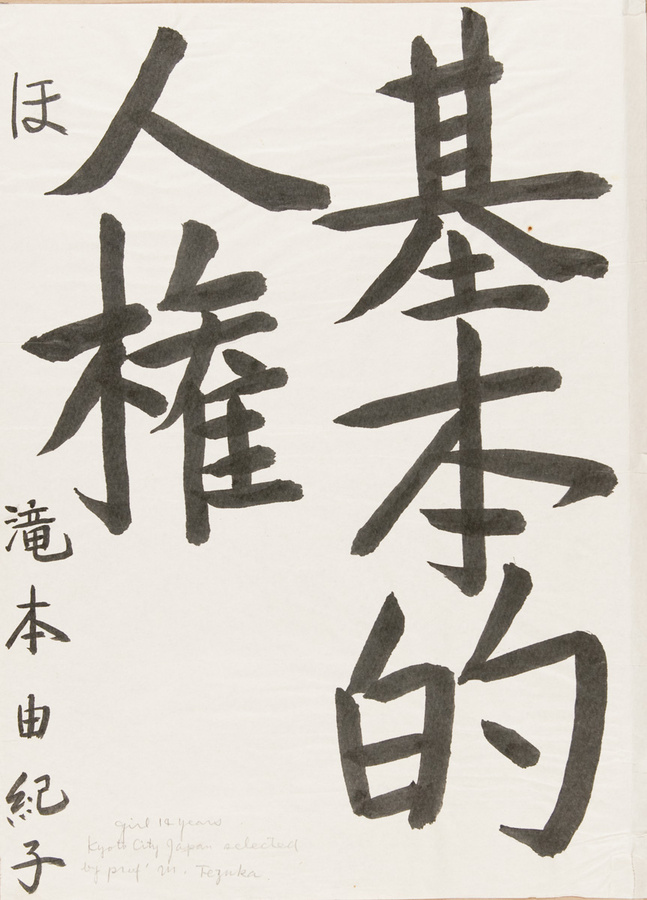 基本的
人権
ほ
滝本由紀子
girl 12 years
Kyoto City Japan selected
by prof M. Tezuka